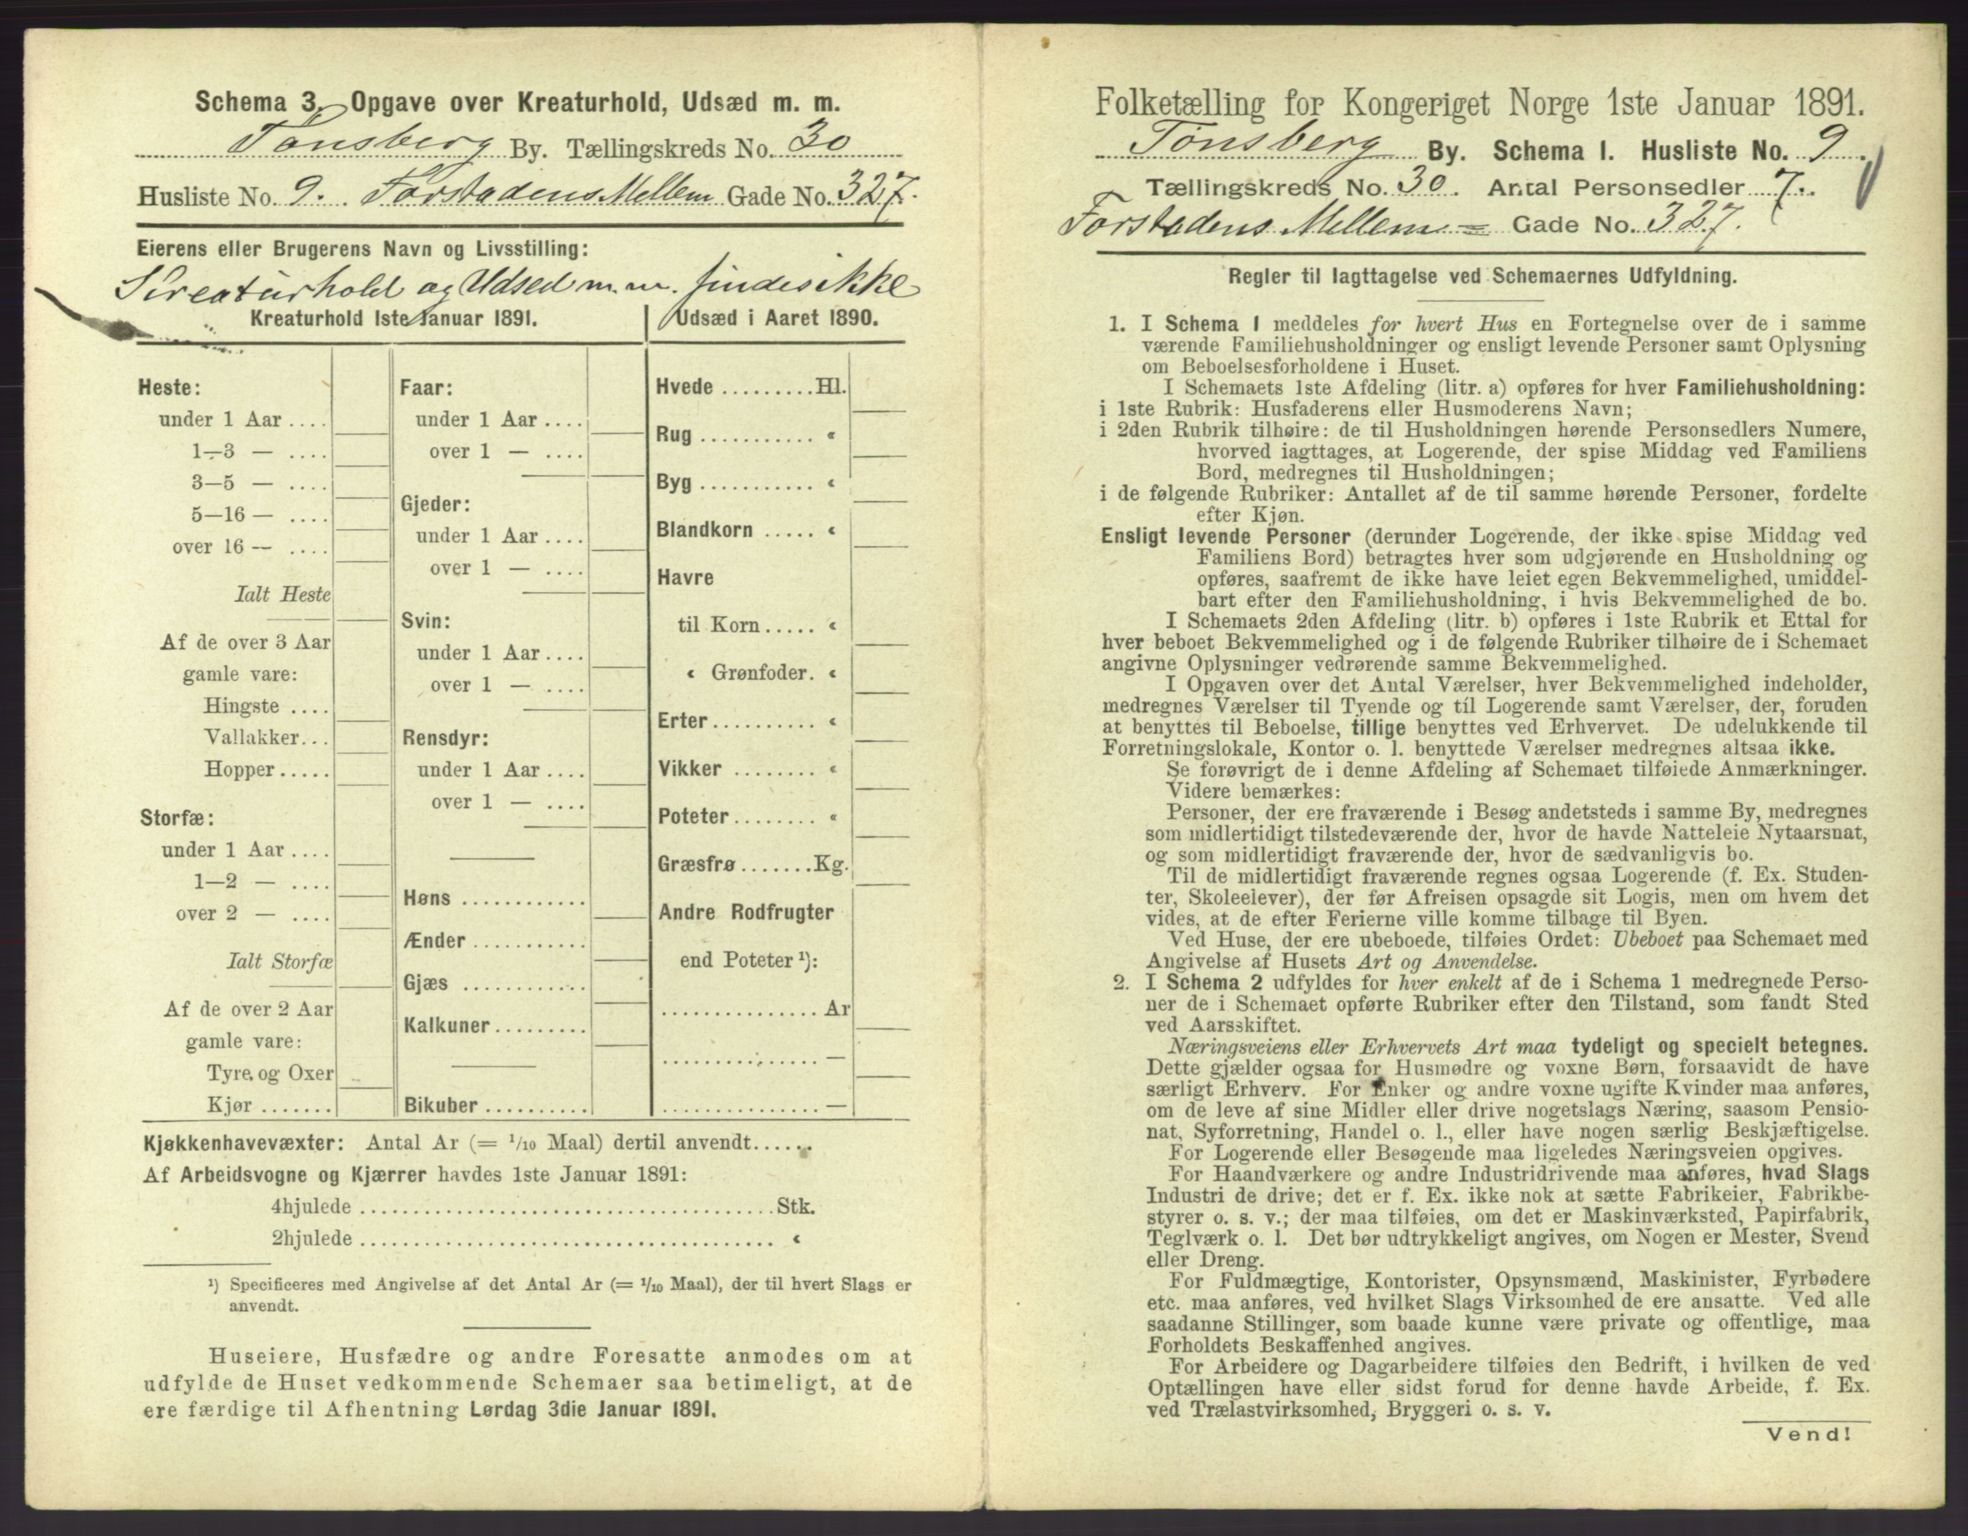 Schema 3. Opgave over Kreaturhold, Udsæd m. m.
Tønsberg By. Tællingskreds No. 30
Husliste No. 9. Forstadens Mellem Gade No. 327.
Eierens eller Brugerens Navn og Livsstilling:
Kreaturhold og Udsed m.m. findes ikke
Kreaturhold 1ste Januar 1891.
Heste:
under 1 Aar ....
1—3 — ....
3—5 — ....
5—16 — ....
over 16 — ....
Ialt Heste
Af de over 3 Aar
gamle vare:
Hingste ....
Vallakker...
Hopper.....
Storfæ:
under 1 Aar....
1—2 — ....
over 2 — ....
Ialt Storfæ
Af de over 2 Aar
gamle vare:
Tyre og Oxer
Kjør .......
Faar:
under 1 Aar ....
over 1 — ....
Gjeder:
under 1 Aar ....
over 1 — ....
Svin:
under 1 Aar....
over 1 — ....
Rensdyr:
under 1 Aar ....
over 1 — ....
Høns ............
Ænder ...........
Gjæs ............
Kalkuner.........
Bikuber ..........
Udsæd i Aaret 1890.
Hvede .........Hl.
Rug ........... «
Byg ........... «
Blandkorn ..... «
Havre
til Korn..... «
« Grønfoder. «
Erter.......... «
Vikker ........ «
Poteter........ «
Græsfrø.......Kg.
Andre Rodfrugter
end Poteter ¹):
...............Ar
...............—
...............—
Kjøkkenhavevæxter: Antal Ar (= 1/10 Maal) dertil anvendt......
Af Arbeidsvogne og Kjærrer havdes 1ste Januar 1891:
4hjulede ......................................Stk.
2hjulede ...................................... «
¹) Specificeres med Angivelse af det Antal Ar (= 1/10 Maal), der til hvert Slags er
anvendt.
Huseiere, Husfædre og andre Foresatte anmodes om at
udfylde de Huset vedkommende Schemaer saa betimeligt, at de
ere færdige til Afhentning Lørdag 3die Januar 1891.
Folketælling for Kongeriget Norge 1ste Januar 1891.
Tønsberg By. Schema I. Husliste No. 9.
Tællingskreds No. 30. Antal Personsedler 7.
Forstadens Mellem= Gade No. 327.
Regler til Iagttagelse ved Schemaernes Udfyldning.
1. I Schema 1 meddeles for hvert Hus en Fortegnelse over de i samme
værende Familiehusholdninger og ensligt levende Personer samt Oplysning
om Beboelsesforholdene i Huset.
I Schemaets 1ste Afdeling (litr. a) opføres for hver Familiehusholdning:
i 1ste Rubrik: Husfaderens eller Husmoderens Navn;
i 2den Rubrik tilhøire: de til Husholdningen hørende Personsedlers Numere,
hvorved iagttages, at Logerende, der spise Middag ved Familiens
Bord, medregnes til Husholdningen;
i de følgende Rubriker: Antallet af de til samme hørende Personer, fordelte
efter Kjøn.
Ensligt levende Personer (derunder Logerende, der ikke spise Middag ved
Familiens Bord) betragtes hver som udgjørende en Husholdning og
opføres, saafremt de ikke have leiet egen Bekvemmelighed, umiddel-
bart efter den Familiehusholdning, i hvis Bekvemmelighed de bo.
I Schemaets 2den Afdeling (litr. b) opføres i 1ste Rubrik et Ettal for
hver beboet Bekvemmelighed og i de følgende Rubriker tilhøire de i Schemaet
angivne Oplysninger vedrørende samme Bekvemmelighed.
I Opgaven over det Antal Værelser, hver Bekvemmelighed indeholder,
medregnes Værelser til Tyende og til Logerende samt Værelser, der, foruden
at benyttes til Beboelse, tillige benyttes ved Erhvervet. De udelukkende til
Forretningslokale, Kontor o. l. benyttede Værelser medregnes altsaa ikke.
Se forøvrigt de i denne Afdeling af Schemaet tilføiede Anmærkninger.
Videre bemærkes:
Personer, der ere fraværende i Besøg andetsteds i samme By, medregnes
som midlertidigt tilstedeværende der, hvor de havde Natteleie Nytaarsnat,
og som midlertidigt fraværende der, hvor de sædvanligvis bo.
Til de midlertidigt fraværende regnes ogsaa Logerende (f. Ex. Studen-
ter, Skoleelever), der før Afreisen opsagde sit Logis, men om hvem det
vides, at de efter Ferierne ville komme tilbage til Byen.
Ved Huse, der ere ubeboede, tilføies Ordet: Ubeboet paa Schemaet med
Angivelse af Husets Art og Anvendelse.
2. I Schema 2 udfyldes for hver enkelt af de i Schema 1 medregnede Perso-
ner de i Schemaet opførte Rubriker efter den Tilstand, som fandt Sted
ved Aarsskiftet.
Næringsveiens eller Erhvervets Art maa tydeligt og specielt betegnes.
Dette gjælder ogsaa for Husmødre og voxne Børn, forsaavidt de have
særligt Erhverv. For Enker og andre voxne ugifte Kvinder maa anføres,
om de leve af sine Midler eller drive nogetslags Næring, saasom Pensio-
nat, Syforretning, Handel o. l., eller have nogen særlig Beskjæftigelse.
For Logerende eller Besøgende maa ligeledes Næringsveien opgives.
For Haandværkere og andre Industridrivende maa anføres, hvad Slags
Industri de drive; det er f. Ex. ikke nok at sætte Fabrikeier, Fabrikbe-
styrer o. s. v.; der maa tilføies, om det er Maskinværksted, Papirfabrik,
Teglværk o. l. Det bør udtrykkeligt angives, om Nogen er Mester, Svend
eller Dreng.
For Fuldmægtige, Kontorister, Opsynsmænd, Maskinister, Fyrbødere
etc. maa anføres, ved hvilket Slags Virksomhed de ere ansatte. Ved alle
saadanne Stillinger, som baade kunne være private og offentlige, maa
Forholdets Beskaffenhed angives.
For Arbeidere og Dagarbeidere tilføies den Bedrift, i hvilken de ved
Optællingen have eller sidst forud for denne havde Arbeide, f. Ex.
ved Trælastvirksomhed, Bryggeri o. s. v.
Vend!